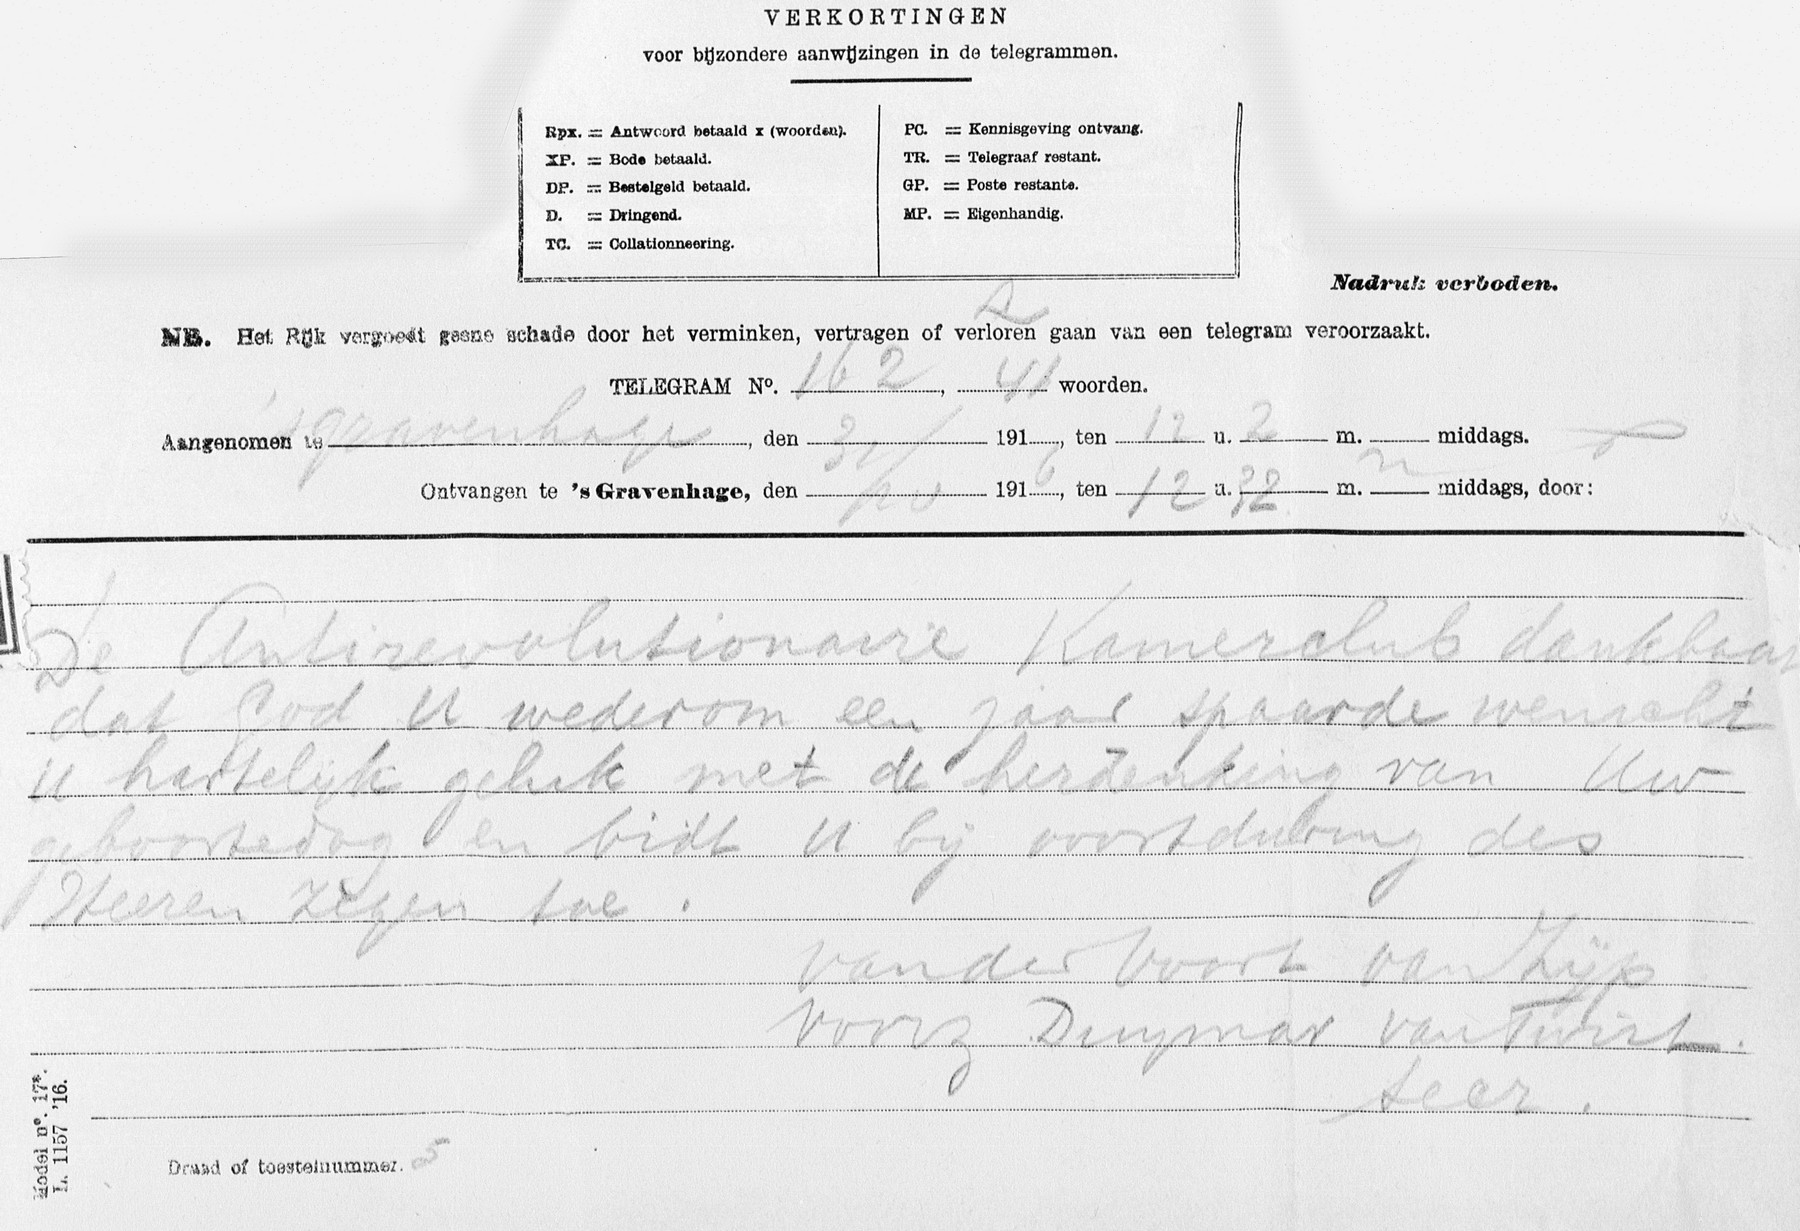 VERKORTINGEN
voor bijzondere aanwijzingen in de telegrammen.
Rpx. = Antwoord betaald x (woorden).
XP. = Bode betaald.
DP. = Bestelgeld betaald.
D. = Dringend.
TC. = Collationneering.
PC. = Kennisgeving ontvang.
TR. = Telegraaf restant.
GP. = Poste restante.
MP. = Eigenhandig.
Nadruk verboden.
NB. Het Rijk vergoedt geene schade door het verminken, vertragen of verloren gaan van een telegram veroorzaakt.
TELEGRAM No. 162, 41 woorden.
Aangenomen te 'sgravenhage, den 191, ten 12 u. 2 m. middags.
Ontvangen te 's Gravenhage, den 1916, ten 12 u. 32 m. n middags, door:
De Antirevolutionaire Kamerclub dankbaar
dat God U wederom een jaar spaarde wenscht
U hartelijk geluk met de herdenking van Uw
geboortedag en bidt U bij voortduring des
Heeren zegen toe.
van der Voort van Zijp
voorz Duymaer van Twist.
secr.
Draad of toestelnummer. 5
Model no. 17a.
L. 1157 '16.